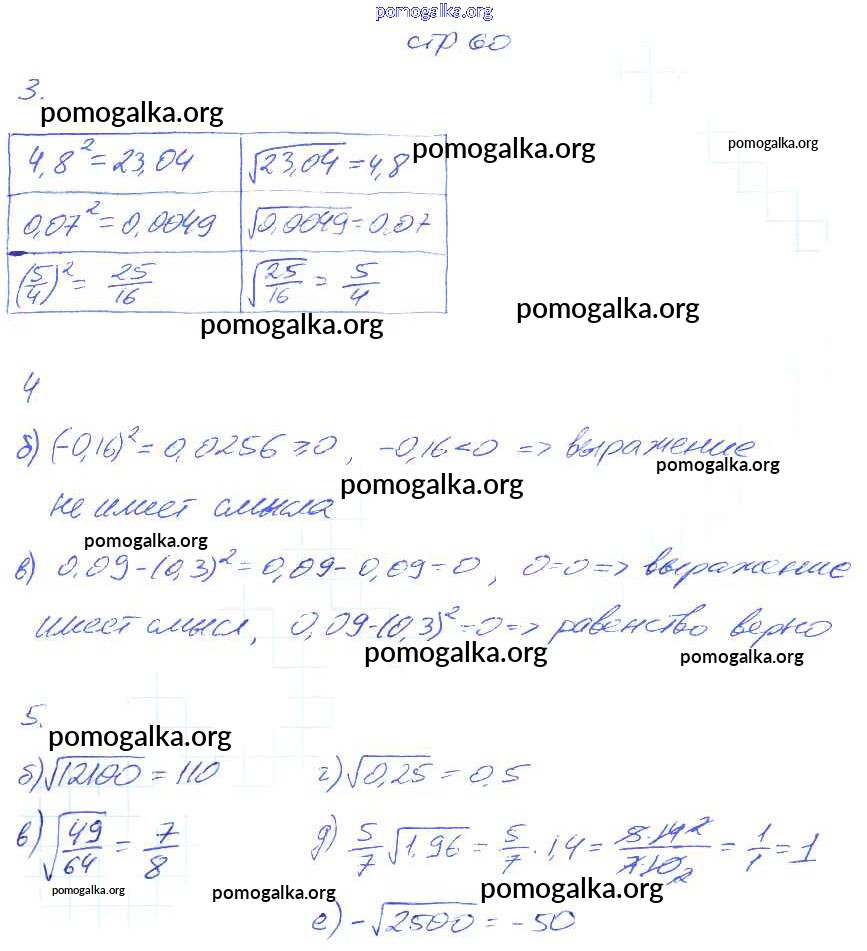 pomogalka.org
стр 60
3.
pomogalka.org
4,8² = 23,04 √23,04 = 4,8 pomogalka.org pomogalka.org
0,07² = 0,0049 √0,0049 = 0,07
(5/4)² = 25/16 √25/16 = 5/4
pomogalka.org pomogalka.org
4
б) (-0,16)² = 0,0256 ⩾ 0, -0,16 < 0 => выражение
pomogalka.org pomogalka.org
не имеет смысла
pomogalka.org
в) 0,09-(0,3)² = 0,09 - 0,09 = 0, 0=0 => выражение
имеет смысл, 0,09-(0,3)² = 0 => равенство верно
pomogalka.org pomogalka.org
5.
pomogalka.org
б) √12100 = 110 г) √0,25 = 0,5
в) √49/64 = 7/8 д) 5/7 √1,96 = 5/7 · 1,4 = 5·14 2/7·10 2 = 1/1 = 1
pomogalka.org pomogalka.org pomogalka.org
е) -√2500 = -50